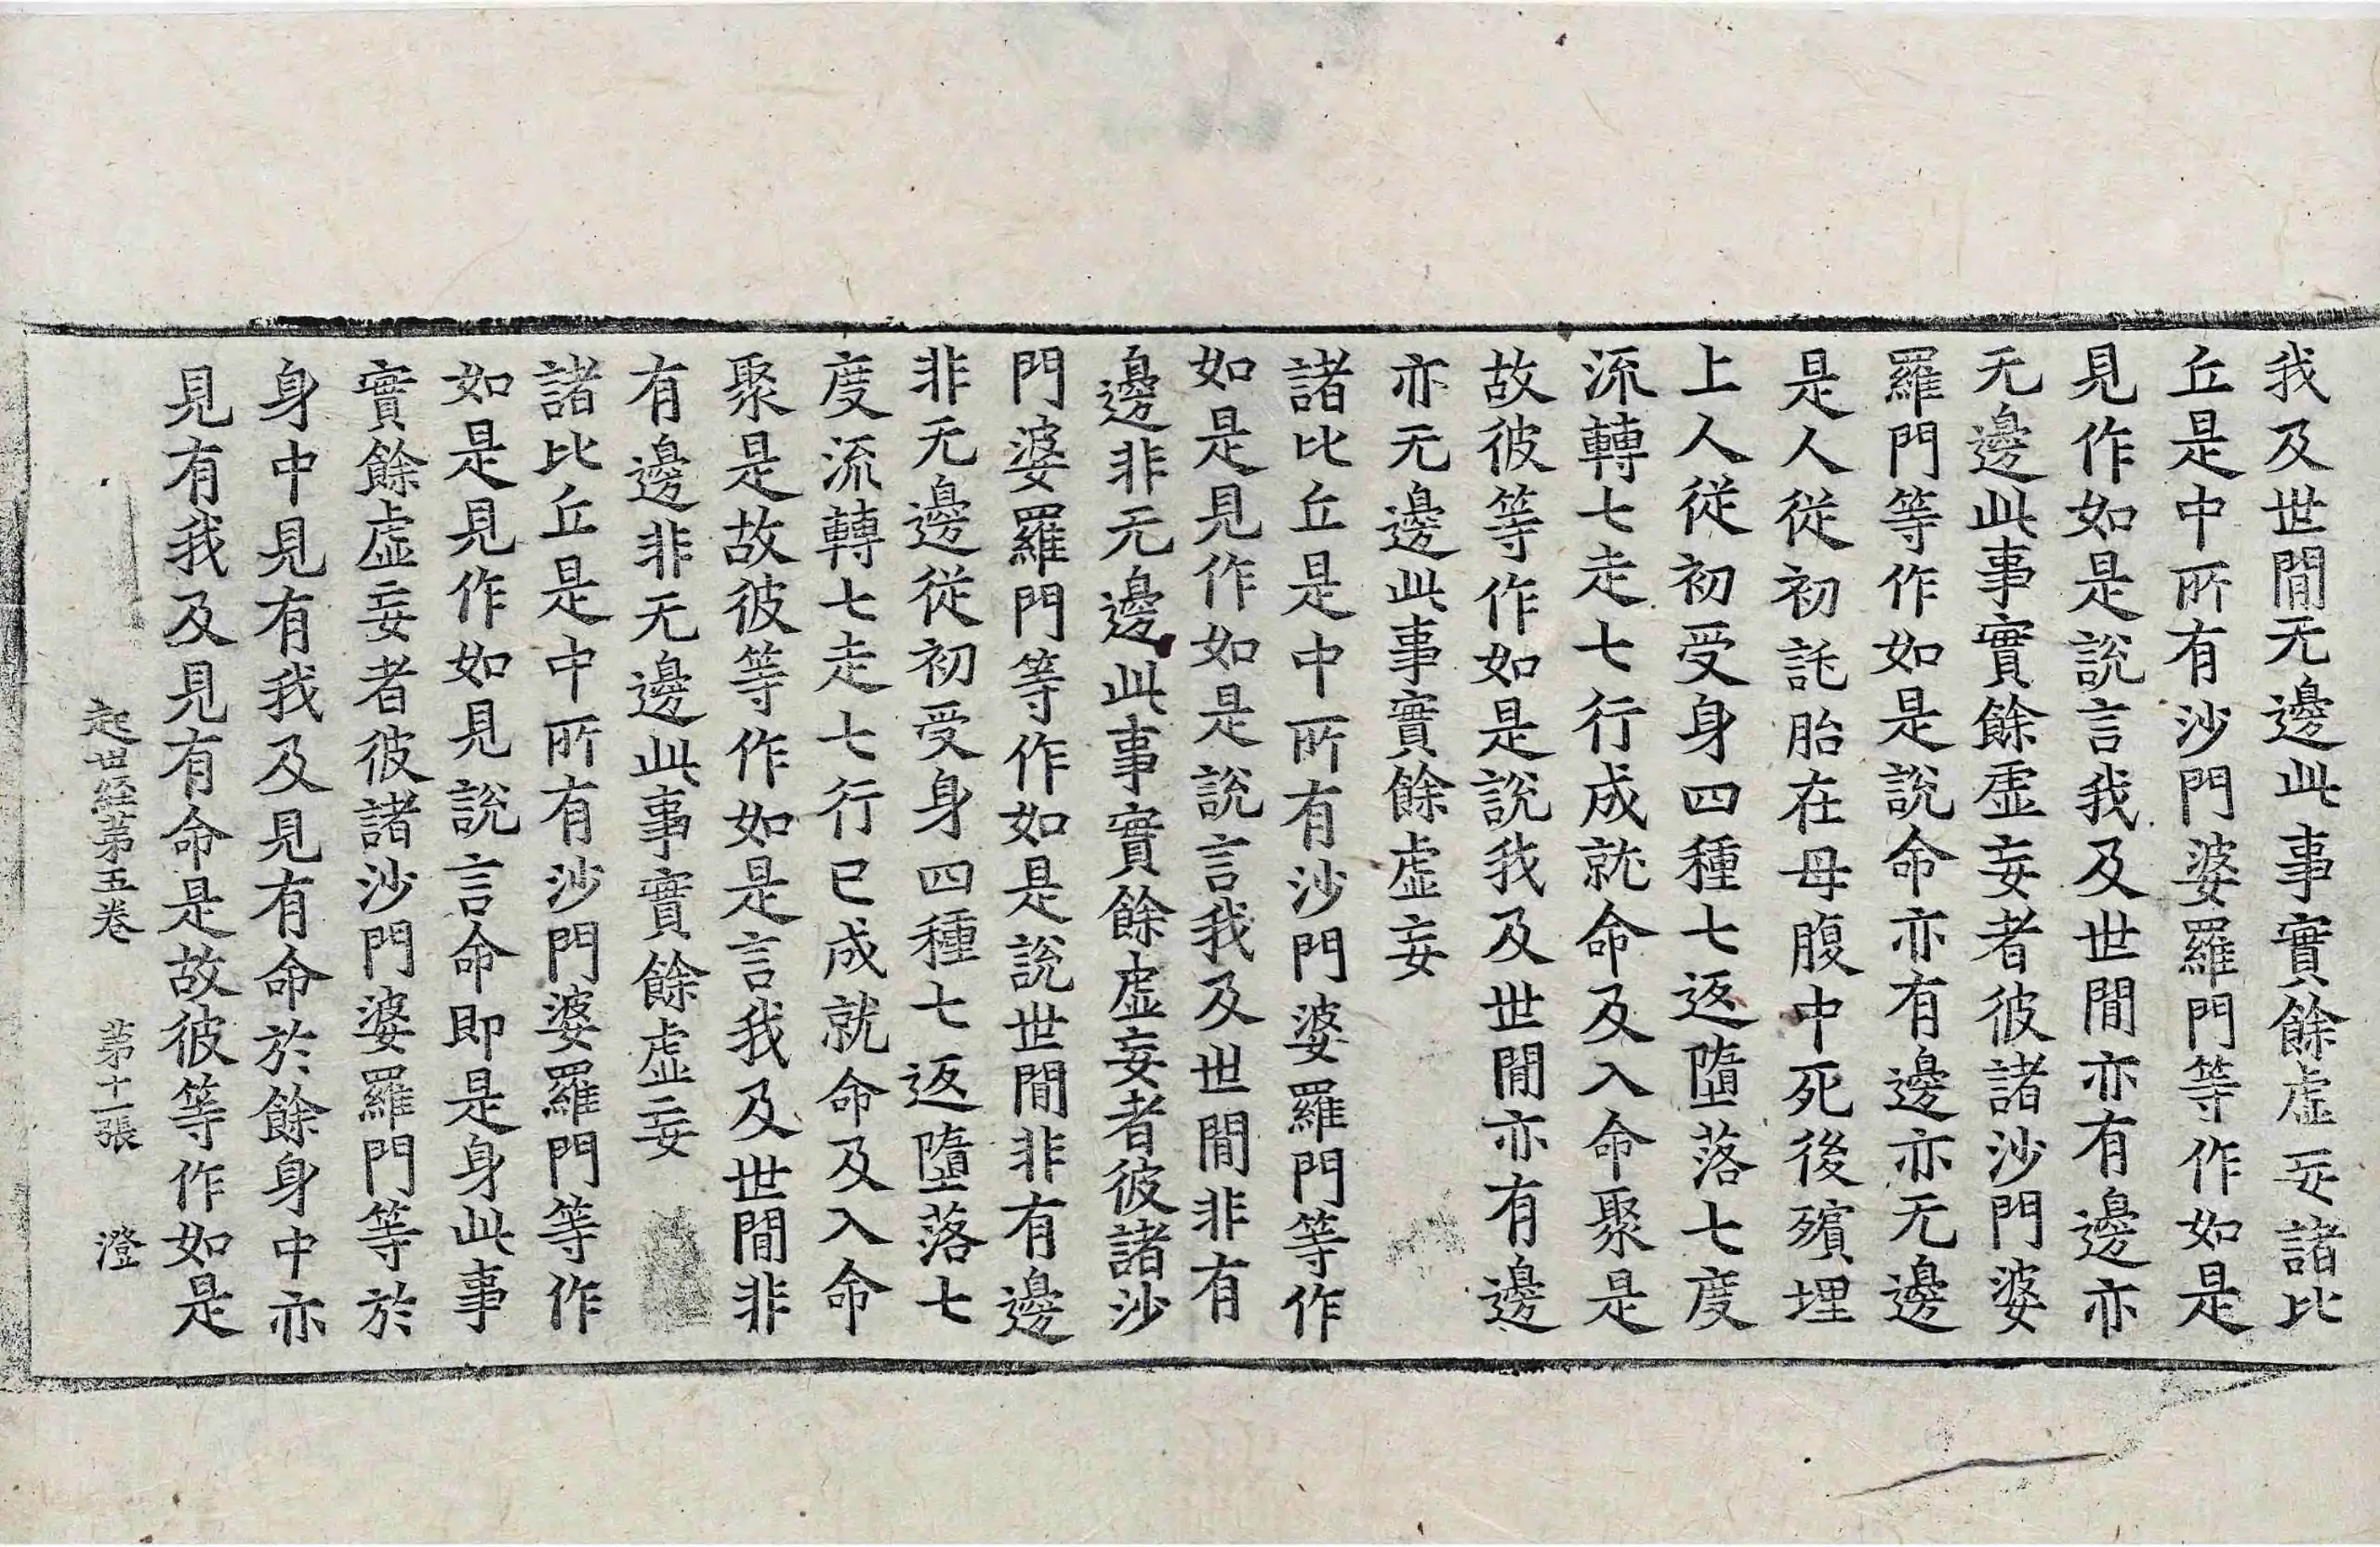 我及世間无邊此事實餘虛妄諸比
丘是中所有沙門婆羅門等作如是
見作如是說言我及世間亦有邊亦
无邊此事實餘虛妄者彼諸沙門婆
羅門等作如是說命亦有邊亦无邊
是人從初託胎在母腹中死後殯埋
上人從初受身四種七返墮落七度
流轉七走七行成就命及入命聚是
故彼等作如是說我及世間亦有邊
亦无邊此事實餘虛妄
諸比丘是中所有沙門婆羅門等作
如是見作如是說言我及世間非有
邊非无邊此事實餘虛妄者彼諸沙
門婆羅門等作如是說世間非有邊
非无邊從初受身四種七返墮落七
度流轉七走七行已成就命及入命
聚是故彼等作如是言我及世間非
有邊非无邊此事實餘虛妄
諸比丘是中所有沙門婆羅門等作
如是見作如見說言命即是身此事
實餘虛妄者彼諸沙門婆羅門等於
身中見有我及見有命於餘身中亦
見有我及見有命是故彼等作如是
起世經第五卷 第十一張 澄